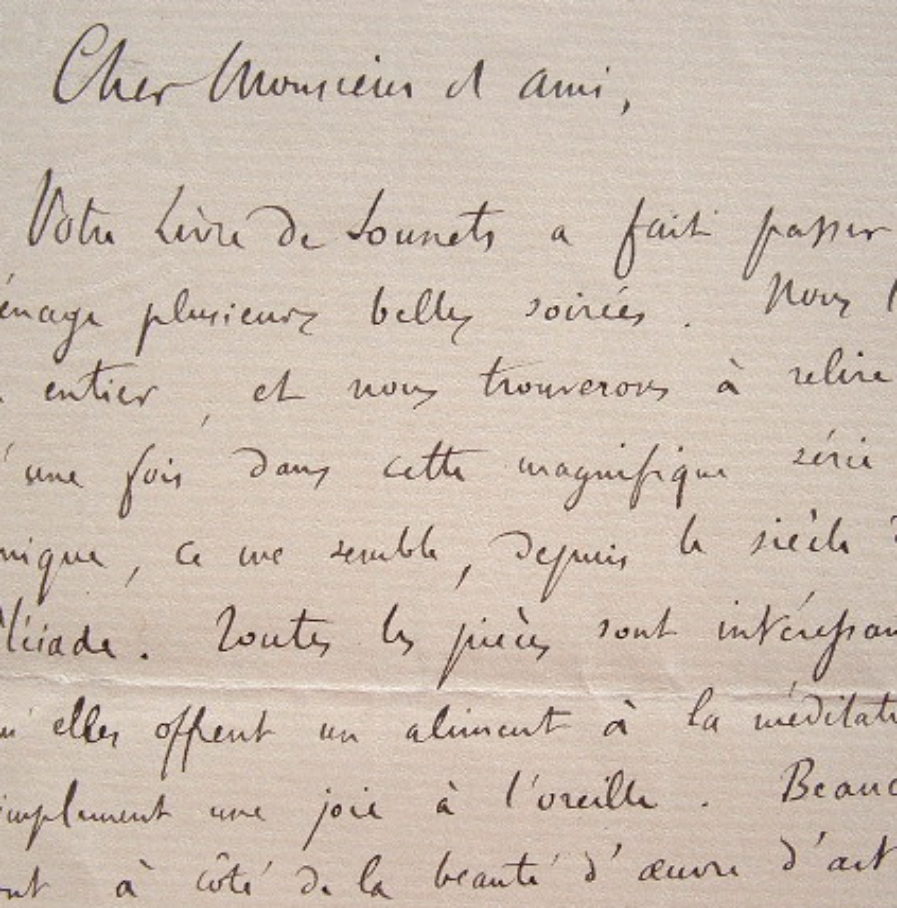 Cher Monsieur et ami,
Votre Livre de Sonnets a fait passer
énage plusieurs belles soirées. Nous l
entier, et nous trouverons à relire
'une fois dans cette magnifique série
nique, ce me semble, depuis le siècle d
Pléiade. Toutes les pièces sont intéressan
u'elles offrent un aliment à la méditati
implement une joie à l'oreille. Beauc
ont à côté de la beauté d'œuvre d'art